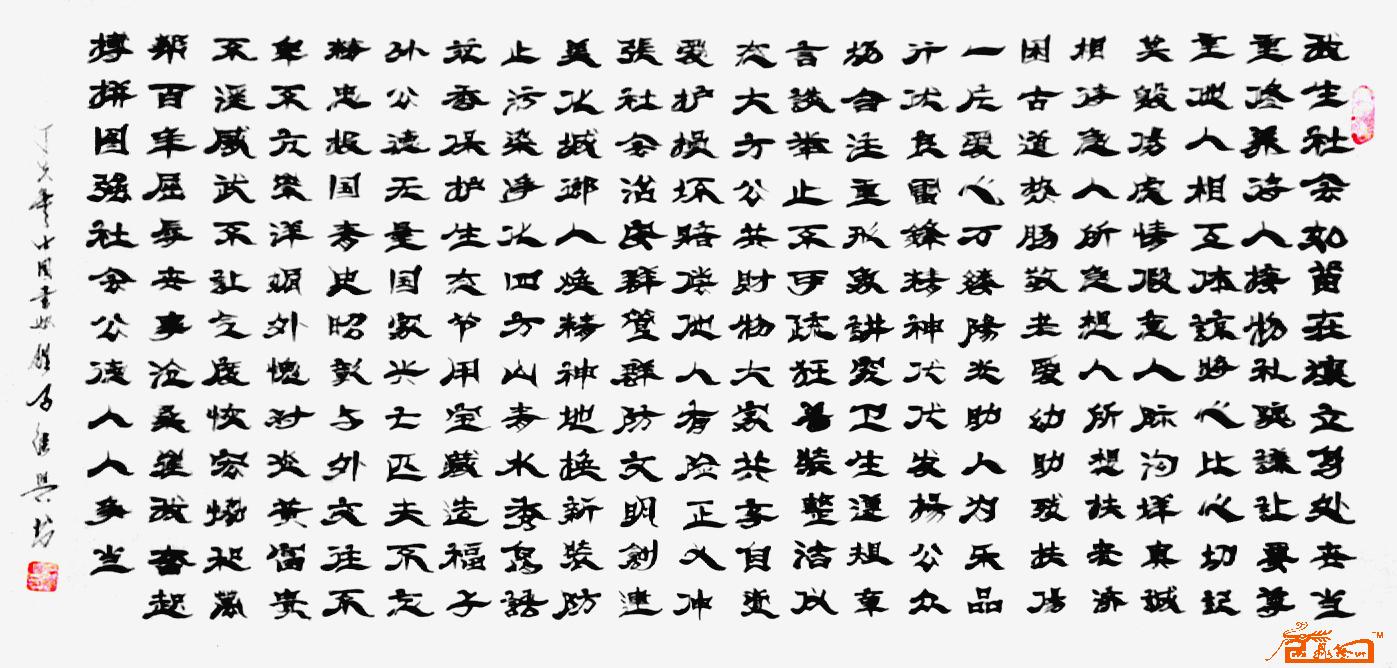 我生社会如苗在壤立身处世当
重修养待人接物礼貌谦让要尊
重他人相互体谅将心比心切记
笑毁伤虚情假意人际沟垟真诚
相待急人所急想人所想扶老济
困古道热肠敬老爱幼助残扶伤
一片爱心万缕陽光助人为乐品
行优良雷鋒精神代代发楊公众
场合注重形象讲究卫生遵规章
言谈举止不可疏狂着装整洁仪
态大方公共财物大家共享自觉
爱护损坏赔偿他人有险正义伸
張社会治安群管群防文明创建
美化城鄉人焕精神地换新装防
止污染净化四方山青水秀鸟语
花香保护生态节用宝藏造福子
孙公德无量国家兴亡匹夫不忘
精忠报国青史昭彰与外交往不
卑不亢崇洋媚外愧对炎黄富贵
不淫威武不让气度恢宏协和萬
邦百年屈辱世事沧桑催我奋起
搏拼图强社会公德人人争当
丁亥年中国書